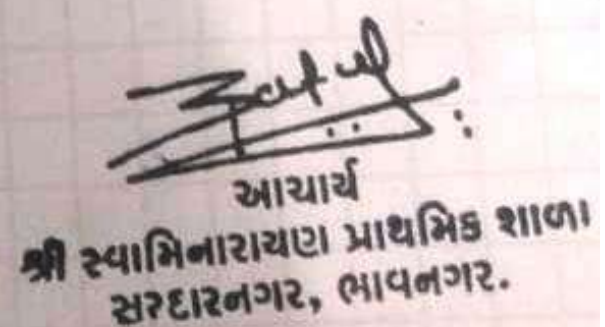 આચાર્ય
શ્રી સ્વામિનારાયણ પ્રાથમિક શાળા
સરદારનગર, ભાવનગર.